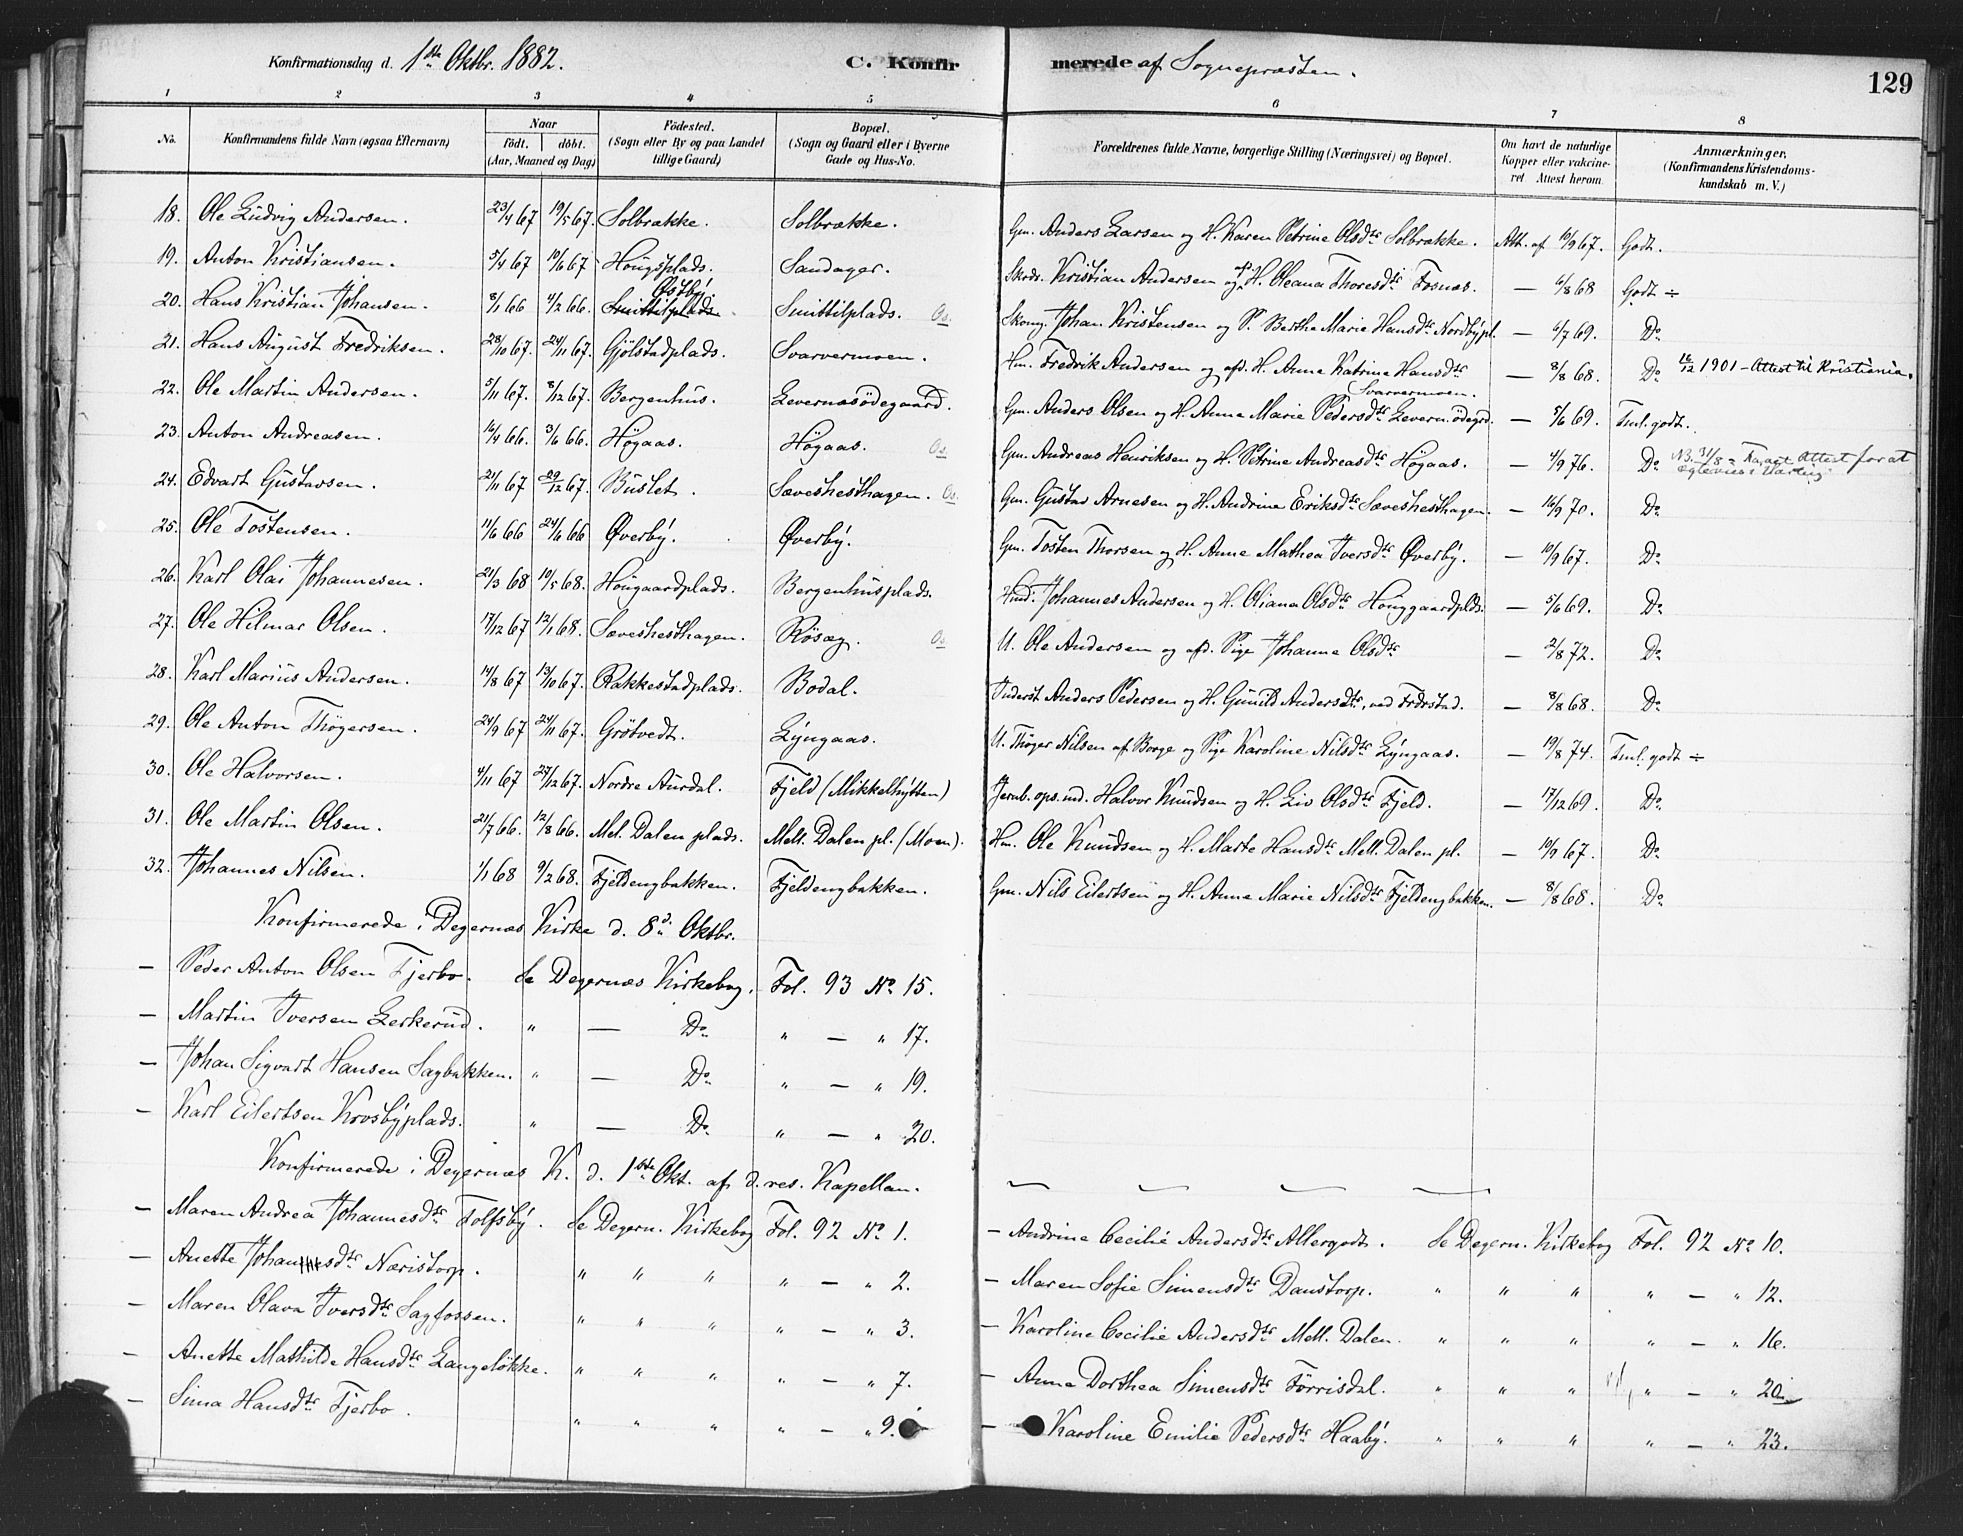 Konfirmationsdag d. 1ste Oktbr. 1882. C. Konfirmerede af Sognepræsten. 129
1 2 3 4 5 6 7 8
No. Konfirmandens fulde Navn (ogsaa Efternavn) Naar födt. döbt. (Aar, Maaned og Dag) Födested. (Sogn eller By og paa Landet tillige Gaard) Bopæl. (Sogn og Gaard eller i Byerne Gade og Hus-No. Forældrenes fulde Navne, borgerlige Stilling (Næringsvei) og Bopæl. Om havt de naturlige Kopper eller vakcineret Attest herom. Anmærkninger. (Konfirmandens Kristendomskundskab m. V.)
18. Ole Ludvig Andersen. 23/4 67 19/5 67. Solbrække. Solbrække. Gm. Anders Larsen og H. Karen Petrine Olsdtr Solbrække. Att. af 10/9 67. Godt.
19. Anton Kristiansen. 5/4 67 10/6 67 Hougsplads. Sandager. Kristian Andersen og H. Oleana Thoresdtr Fosnæs. — 6/8 68 Godt ÷
20. Hans Kristian Johansen. 8/1 66 4/2 66. Östby Smittilplads. Smittilplads. Os. Johan Kristensen og P. Berthe Marie Hansdtr Nordbypl. — 6/7 69. Do
21. Hans August Fredriksen. 28/10 67. 24/11 67. Gjölstadplads. Svarvermoen. Hm. Fredrik Andersen og afd. H. Anne Katrine Hansdtr Svarvermoen. — 8/8 68. Do 16/12 1901 – Attest til Kristiania.
22. Ole Martin Andersen. 5/11 67. 8/12 67. Bergenhus. Levernæsödegaard. Gm. Anders Olsen og H. Anne Marie Pedersdtr Levern.ödegrd. — 5/6 69. Tml. godt.
23. Anton Andreasen. 16/4 66. 3/6 66. Högaas. Högaas. Os. Gm. Andreas Henriksen og H. Petrine Andreasdtr Högaas. — 4/9 76. Do N.B. 31/8 Attest for at
24. Edvart Gustavsen. 21/11 67 29/12 67. Buslet. Sæveshesthagen. Os. Gm. Gustav Arnesen og H. Andrine Eriksdtr Sæveshesthagen. — 16/9 70. Do
25. Ole Tostensen. 11/6 66 24/6 66 Øverby. Øverby. Gm. Tosten Thorsen og H. Anne Mathea Iversdtr Øverby. — 10/9 67. Do
26. Karl Olai Johannesen. 21/3 68 10/5 68. Hougaardplads. Bergenhusplads. Hmd. Johannes Andersen og H. Oliana Olsdtr Houggaardplds. — 5/6 69. Do
27. Ole Hilmar Olsen. 17/12 67 12/1 68. Sæveshesthagen. Rösæg. Os U. Ole Andersen og afd. Pige Johanne Olsdtr — 2/8 72. Do
28. Karl Marius Andersen. 14/8 67 13/10 67. Rakkestadplads. Bodal. Inderst Anders Pedersen og H. Gunild Andersdtr, ved Frdrstad. — 8/8 68. Do
29. Ole Anton Thögersen. 24/9 67 24/11 67. Grötvedt. Lyngaas. U. Thöger Nilsen af Borge og Pige Karoline Nilsdtr Lyngaas. — 19/8 74. Tml. godt ÷
30. Ole Halvorsen. 4/11 67 27/12 67. Nordre Aurdal. Fjeld (Mikkelhytten) Jernb. ops.md. Halvor Knudsen og H. Liv Olsdtr Fjeld. — 17/12 69. Do
31. Ole Martin Olsen. 21/7 66. 12/8 66. Mel. Dalen plads. Mell. Dalen pl. (Moen). Hm. Ole Knudsen og H. Marte Hansdtr Mell. Dalen pl. — 10/9 67. Do
32. Johannes Nilsen. 1/1 68 9/2 68. Fjeldengbakken. Fjeldengbakken. Gm. Nils Eilertsen og H. Anne Marie Nilsdtr Fjeldengbakken. — 8/8 68. Do
Konfirmerede i Degernæs Kirke d. 8d Oktbr.
— Peder Anton Olsen Fjerbo. Se Degernæs Kirkebog. Fol. 93 No 15.
— Martin Iversen Lerkerud. " — Do " — " 17.
— Johan Sigvart Hansen Sagbakken. " — Do " — " 19.
— Karl Eilertsen Krosbyplads. " — Do " — " 20.
Konfirmerede i Degernæs K. d. 1ste Okt. af d. res. Kapellan.
— Maren Andrea Johannesdtr Tolfsby. Se Degern. Kirkebog Fol. 92 No 1. — Andrine Cecilie Andersdtr Allergodt. Se Degern. Kirkebog Fol. 92 No 10.
— Anette Johansdtr Næristorp. " " " " — " 2. — Maren Sofie Simensdtr Danstorp. " " " " — " 12.
— Maren Olava Iversdtr Sagfossen. " " " " — " 3. — Karoline Cecilie Andersdtr Mell. Dalen. " " " " — " 16.
— Anette Mathilde Hansdtr Langelökke. " " " " — " 7. — Anna Dorthea Simensdtr Törrisdal. " " " " — " 20.
— Sina Hansdtr Fjerbo. " " " " — " 9. — Karoline Emilie Pedersdtr Haaby. " " " " — " 23.